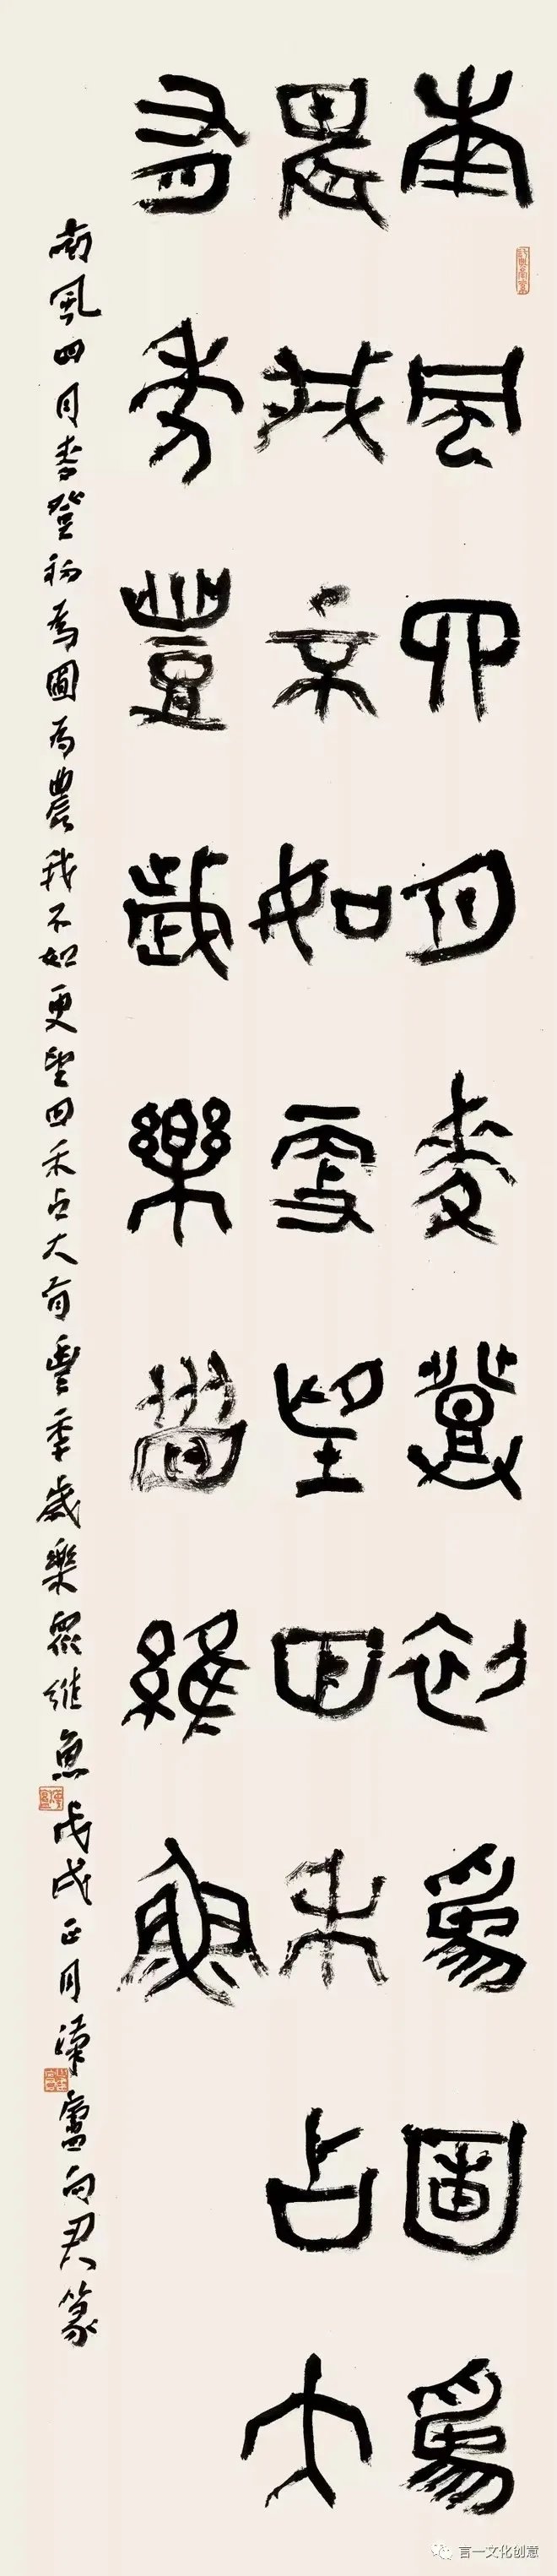 南風四月麥登初爲圃爲
農我不如更望田禾占大
有年豐歲樂眾維魚
南風四月麥登初為圃為農我不如更望田禾占大有豐年歲樂眾維魚戊戌正月漢盦向君篆
言一文化创意